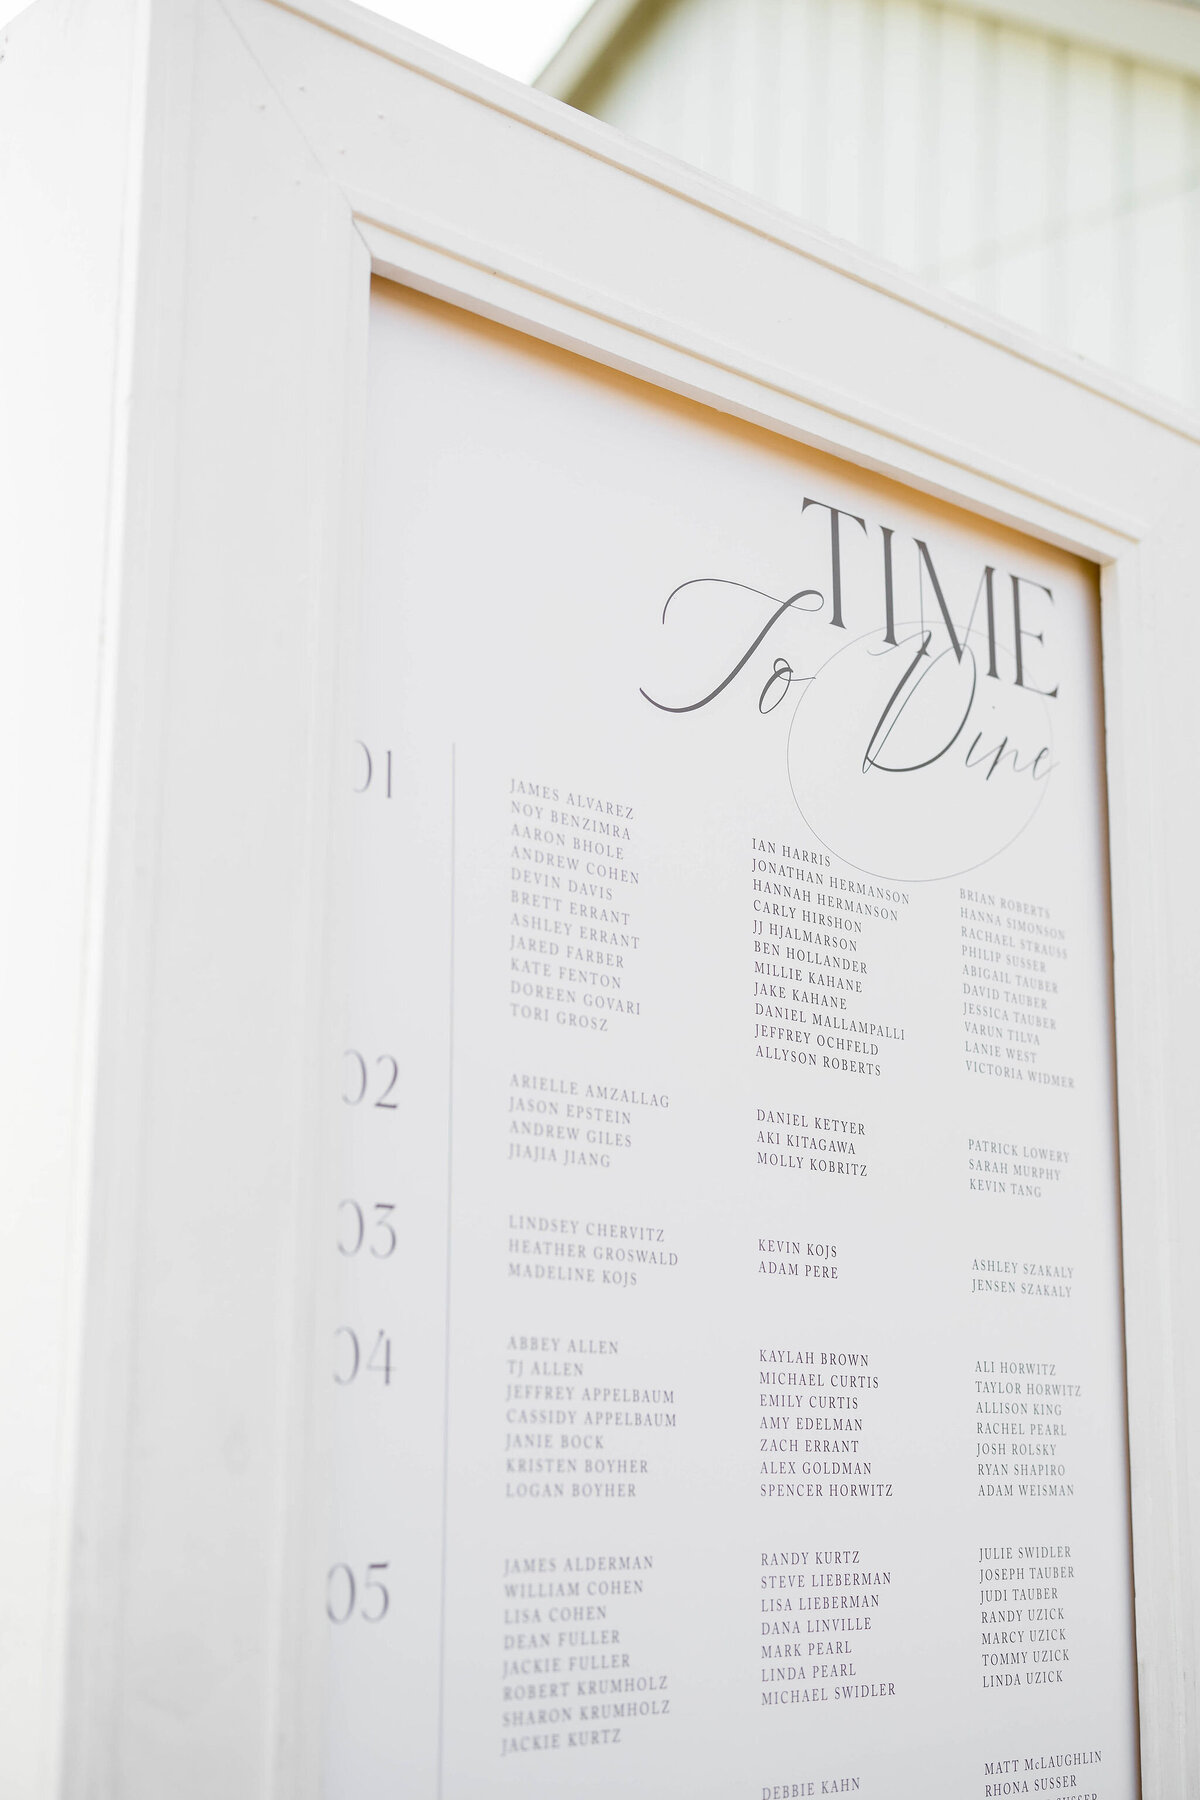 TIME
To Dine
01
JAMES ALVAREZ
NOY BENZIMRA
AARON BHOLE
ANDREW COHEN
DEVIN DAVIS
BRETT ERRANT
ASHLEY ERRANT
JARED FARBER
KATE FENTON
DOREEN GOVARI
TORI GROSZ
IAN HARRIS
JONATHAN HERMANSON
HANNAH HERMANSON
CARLY HIRSHON
JJ HJALMARSON
BEN HOLLANDER
MILLIE KAHANE
JAKE KAHANE
DANIEL MALLAMPALLI
JEFFREY OCHFELD
ALLYSON ROBERTS
BRIAN ROBERTS
HANNA SIMONSON
RACHAEL STRAUSS
PHILIP SUSSER
ABIGAIL TAUBER
DAVID TAUBER
JESSICA TAUBER
VARUN TILVA
LANIE WEST
VICTORIA WIDMER
02
ARIELLE AMZALLAG
JASON EPSTEIN
ANDREW GILES
JIAJIA JIANG
DANIEL KETYER
AKI KITAGAWA
MOLLY KOBRITZ
PATRICK LOWERY
SARAH MURPHY
KEVIN TANG
03
LINDSEY CHERVITZ
HEATHER GROSWALD
MADELINE KOJS
KEVIN KOJS
ADAM PERE
ASHLEY SZAKALY
JENSEN SZAKALY
04
ABBEY ALLEN
TJ ALLEN
JEFFREY APPELBAUM
CASSIDY APPELBAUM
JANIE BOCK
KRISTEN BOYHER
LOGAN BOYHER
KAYLAH BROWN
MICHAEL CURTIS
EMILY CURTIS
AMY EDELMAN
ZACH ERRANT
ALEX GOLDMAN
SPENCER HORWITZ
ALI HORWITZ
TAYLOR HORWITZ
ALLISON KING
RACHEL PEARL
JOSH ROLSKY
RYAN SHAPIRO
ADAM WEISMAN
05
JAMES ALDERMAN
WILLIAM COHEN
LISA COHEN
DEAN FULLER
JACKIE FULLER
ROBERT KRUMHOLZ
SHARON KRUMHOLZ
JACKIE KURTZ
RANDY KURTZ
STEVE LIEBERMAN
LISA LIEBERMAN
DANA LINVILLE
MARK PEARL
LINDA PEARL
MICHAEL SWIDLER
JULIE SWIDLER
JOSEPH TAUBER
JUDI TAUBER
RANDY UZICK
MARCY UZICK
TOMMY UZICK
LINDA UZICK
DEBBIE KAHN
MATT McLAUGHLIN
RHONA SUSSER
SUSSER